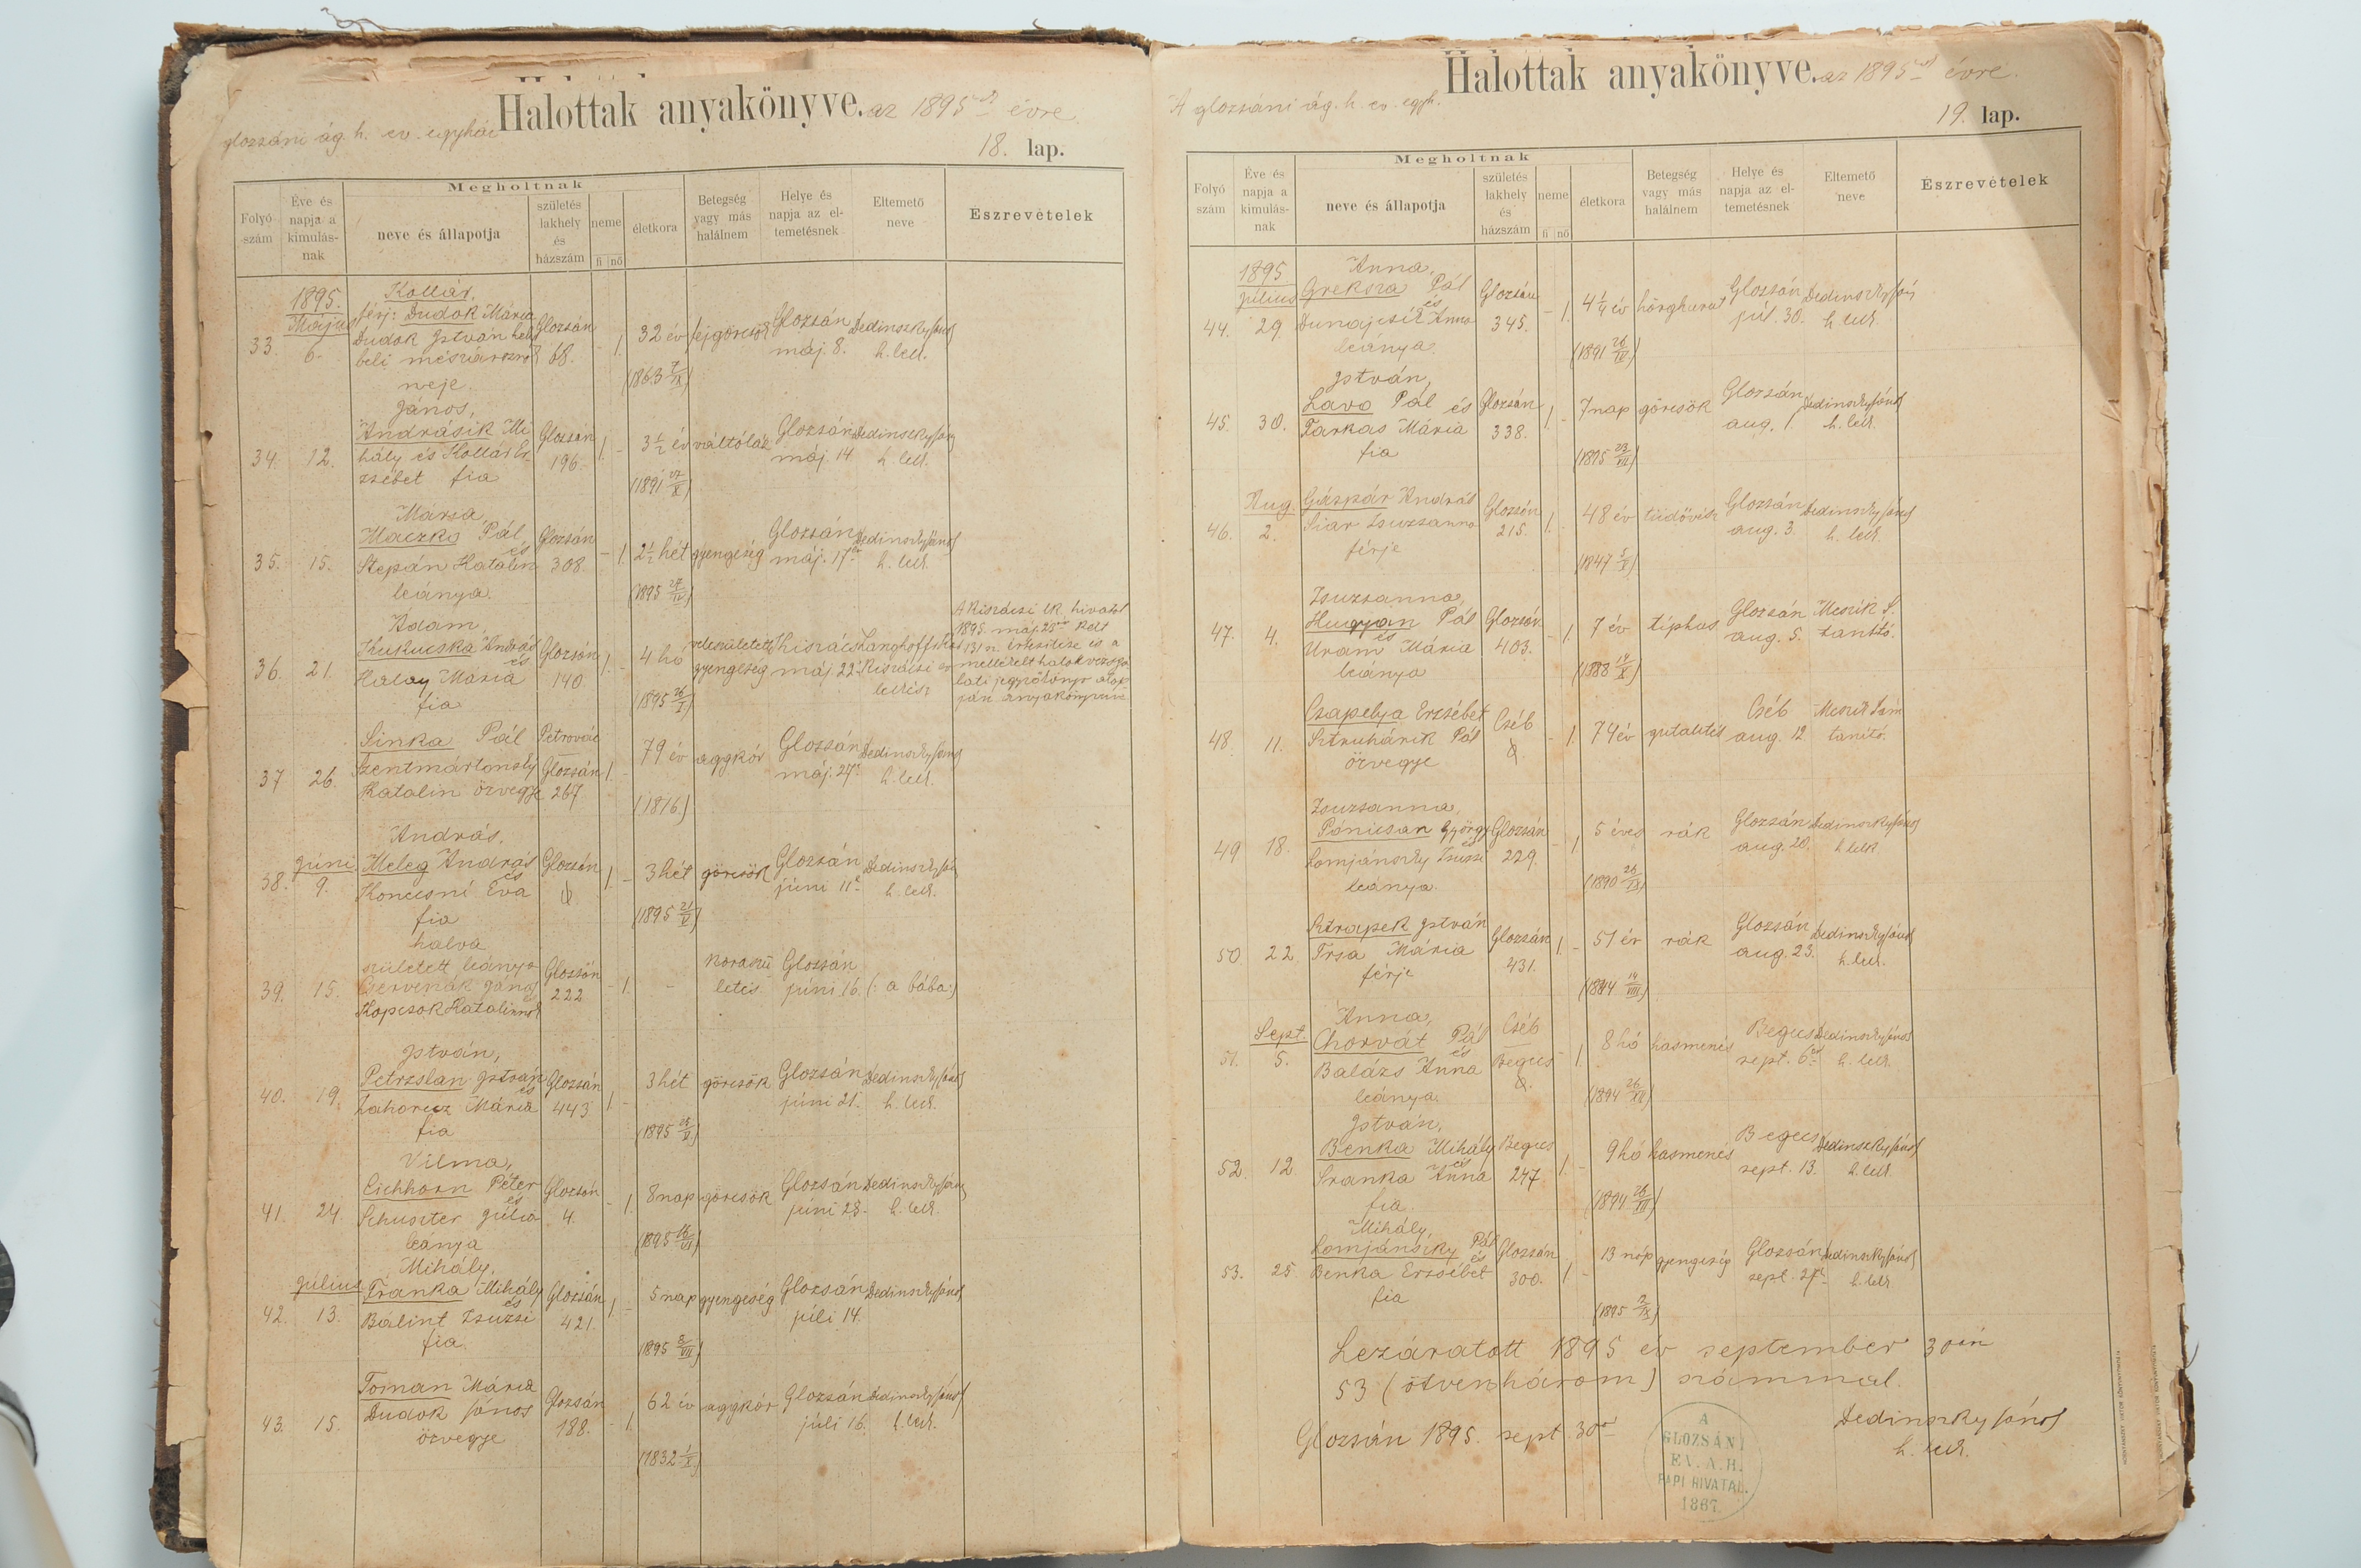 Halottak anyakönyve. az 1895 évre.
glozsáni ág. h. ev. egyház
18. lap.
Folyó szám
Éve és napja a kimulásnak
Megholtnak
neve és állapotja
születés lakhely és házszám
neme
fi nő
életkora
Betegség vagy más halálnem
Helye és napja az eltemetésnek
Eltemető neve
Észrevételek
33. 1895. Május 6.
Kollár,
férj: Dudok Mária
Dudok István
neje.
Glozsán 68. - 1. 32 év (1863 7/IX)
fejgörcsök
Glozsán máj. 8.
Dedinszky János h. lelk.
34. 12.
János,
Andrásik Mi
hály és Kollár Er
zsébet fia
Glozsán 196. 1. - 3 1/2 év (1891 27/X)
váltóláz
Glozsán máj. 14
Dedinszky János h. lelk.
35. 15.
Mária,
Maczko Pál
és
Stepán Katalin
leánya.
Glozsán 308. - 1. 2 1/2 hét (1895 27/IV)
gyengeség
Glozsán máj. 17
Dedinszky János h. lelk.
36. 21.
Ádám,
Kukucska András
és
Halay Mária
fia
Glozsán 140. 1. - 4 hó (1895 26/I)
veleszületett gyengeség
Kiszács máj. 22
Kiszácsi ev lelkész
A Kiszácsi lk. hivatal
1895. máj. 28 kelt
131 sz. értesítése és a
mellékelt halottvizsgá
lati jegyzőkönyv alap
ján anyakönyvezve
37 26.
Sinka Pál
Szentmártonsky
Katalin özvegye
Petrovácz
Glozsán 267 1. - 79 év (1816)
aggkór
Glozsán máj. 27
Dedinszky János h. lelk.
38. júni 9.
András,
Meleg András
és
Koncsni Éva
fia
Glozsán 1. - 3 hét (1895 21/V)
görcsök
Glozsán júni 11
Dedinszky János h. lelk.
39. 15.
halva
született leánya
Cservenák János
Kopcsok Katalinnak
Glozsán 222 - 1. -
koraszü
letés
Glozsán júni 16.
(: a bába:)
40. 19.
István,
Petrzslan István
és
Zahorecz Mária
fia
Glozsán 443 1. - 3 hét (1895 28/V)
görcsök
Glozsán júni 21.
Dedinszky János h. lelk.
41. 24.
Vilma,
Eichhorn Péter
és
Schuszter Júlia
leánya
Glozsán 4. - 1. 8 nap (1895 16/VI)
görcsök
Glozsán júni 25.
Dedinszky János h. lelk.
42. július 13.
Mihály,
Franka Mihály
és
Bálint Zsuzsi
fia.
Glozsán 421. 1. - 5 nap (1895 8/VII)
gyengeség
Glozsán júli 14.
Dedinszky János
43. 15.
Toman Mária
Dudok János
özvegye
Glozsán 188. - 1. 62 év (1832 1/X)
aggkór
Glozsán júli 16.
Dedinszky János h. lelk.
Halottak anyakönyve. az 1895 évre.
A glozsáni ág. h. ev. egyh.
19. lap.
Folyó szám
Éve és napja a kimulásnak
Megholtnak
neve és állapotja
születés lakhely és házszám
neme
fi nő
életkora
Betegség vagy más halálnem
Helye és napja az eltemetésnek
Eltemető neve
Észrevételek
44. 1895 július 29.
Anna,
Greksza Pál
és
Dunajcsik Anna
leánya.
Glozsán 345. - 1. 4 1/4 év (1891 26/IV)
hörghurut
Glozsán júl. 30.
Dedinszky János h. lelk.
45. 30.
István,
Lavo Pál és
Farkas Mária
fia
Glozsán 338. 1. - 7 nap (1895 23/VII)
görcsök
Glozsán aug. 1.
Dedinszky János h. lelk.
46. Aug. 2.
Gáspár András
Siar Zsuzsanna
férje
Glozsán 215. 1. - 48 év (1847 5/V)
tüdővész
Glozsán aug. 3.
Dedinszky János h. lelk.
47. 4.
Zsuzsanna,
Hugyan Pál
és
Uram Mária
leánya
Glozsán 403. - 1. 7 év (1888 14/X)
tiphus
Glozsán aug. 5.
Meszik S. tanító.
48. 11.
Csapelya Erzsébet
Sztruhárik Pál
özvegye
Cséb - 1. 74 év
gutaütés
Cséb aug. 12.
Meszik Sám tanító.
49 18.
Zsuzsanna,
Pánicsan György
és
Lomjánszky Zsuzsi
leánya.
Glozsán 229. - 1 5 éves (1890 26/IX)
rák
Glozsán aug. 20.
Dedinszky János h. lelk
50 22
Sztrapek István
Trsa Mária
férje
Glozsán 431. 1. - 51 év (1844 14/VIII)
rák
Glozsán aug. 23.
Dedinszky János h. lelk.
51. Sept. 5.
Anna,
Chorvát Pál
és
Balázs Anna
leánya.
Cséb
Begecs - 1. 8 hó (1894 26/XII)
hasmenés
Begecs sept. 6
Dedinszky János h. lelk.
52. 12
István,
Benka Mihály
és
Sranka Anna
fia.
Begecs 247 1. - 9 hó (1894 26/XII)
hasmenés
Begecs sept. 13.
Dedinszky János h. lelk.
53. 25.
Mihály,
Lomjánszky Pál
és
Benka Erzsébet
fia
Glozsán 300. 1. - 13 nap (1895 /IX)
gyengeség
Glozsán sept. 27
Dedinszky János h. lelk
Lezáratott 1895 év september 30án
53 (ötvenhárom) számmal.
Glozsán 1895. sept. 30
Dedinszky János
h. lelk.
A
GLOZSÁNI
EV. A. H.
PAPI HIVATAL.
1867.